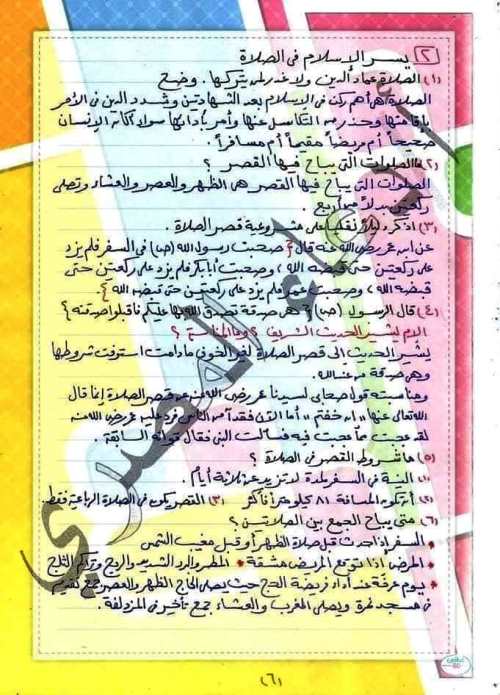 [٢] يسر الإسلام في الصلاة
(١) الصلاة عماد الدين ولا عذر لمن يتركها . وضح
الصلاة هي أهم ركن في الإسلام بعد الشهادتين وشدد الدين في الأمر
بإقامتها وحذر من التكاسل عنها وأمر بأدائها سواء أكان الإنسان
صحيحاً أم مريضاً مقيماً أم مسافراً .
(٢) ما الصلوات التي يباح فيها القصر ؟
الصلوات التي يباح فيها القصر هي الظهر والعصر والعشاء وتصلى
ركعتين بدلاً من أربع .
(٣) اذكر دليلاً نقلياً على مشروعية قصر الصلاة .
عن ابن عمر رضي الله عنه قال { صحبت رسول الله (ص) في السفر فلم يزد
على ركعتين حتى قبضه الله ، وصحبت أبا بكر فلم يزد على ركعتين حتى
قبضه الله ، وصحبت عمر فلم يزد على ركعتين حتى قبضه الله }.
(٤) قال الرسول (ص) { هي صدقة تصدق الله بها عليكم فاقبلوا صدقته }
إلام يشير الحديث الشريف ؟ وما المناسبة ؟
يشير الحديث إلى قصر الصلاة لغير الخوف ما دامت استوفت شروطها
وهي صدقة من عند الله .
ومناسبته قول صحابي لسيدنا عمر رضي الله عنه عن قصر الصلاة إنما قال
الله تعالى عنها " إن خفتم " أما الآن فقد أمن الناس فرد عليه عمر رضي الله عنه
لقد عجبت مما عجبت فيه فسألت النبي فقال قوله السابقة .
(٥) ما شروط القصر في الصلاة ؟
(١) النية في السفر لمدة لا تزيد عن ثلاثة أيام .
(٢) أن تكون المسافة ٨١ كيلومتر أو أكثر (٣) القصر يكون في الصلاة الرباعية فقط .
(٦) متى يباح الجمع بين الصلاتين ؟
• السفر إذا حدث قبل صلاة الظهر أو قبل مغيب الشمس
• المرض إذا توقع المريض مشقة • المطر والبرد الشديد والريح وتراكم الثلج
• يوم عرفة عند أداء فريضة الحج حيث يصلي الحاج الظهر والعصر جمع تقديم
في مسجد نمرة ويصلي المغرب والعشاء جمع تأخير في المزدلفة .
(٦)